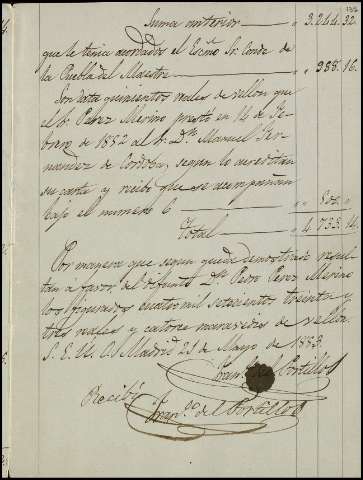 134
Suma anterior " 3.244.32
que le tenia acordados el Escmo. Sr. Conde de
la Puebla del Maestre " 988.16
Son data quinientos reales de vellon que
el Sr. Perez Merino prestó en 14 de Fe-
brero de 1832 al Sr. Dn. Manuel Fer-
nandez de Cordoba, segun lo acreditan
su carta y recibo que se acompañan
bajo el numero 6 " 500. "
Total " 4.733.14
Por manera que segun queda demostrado resul-
tan a favor del difunto Dn. Pedro Perez Merino
los figurados cuatro mil setecientos treinta y
tres reales y catorce maravedises de vellon.
S. E. U. O. Madrid 23 de Mayo de 1833.
del Portillo
Recibí
Franco. del Portillo